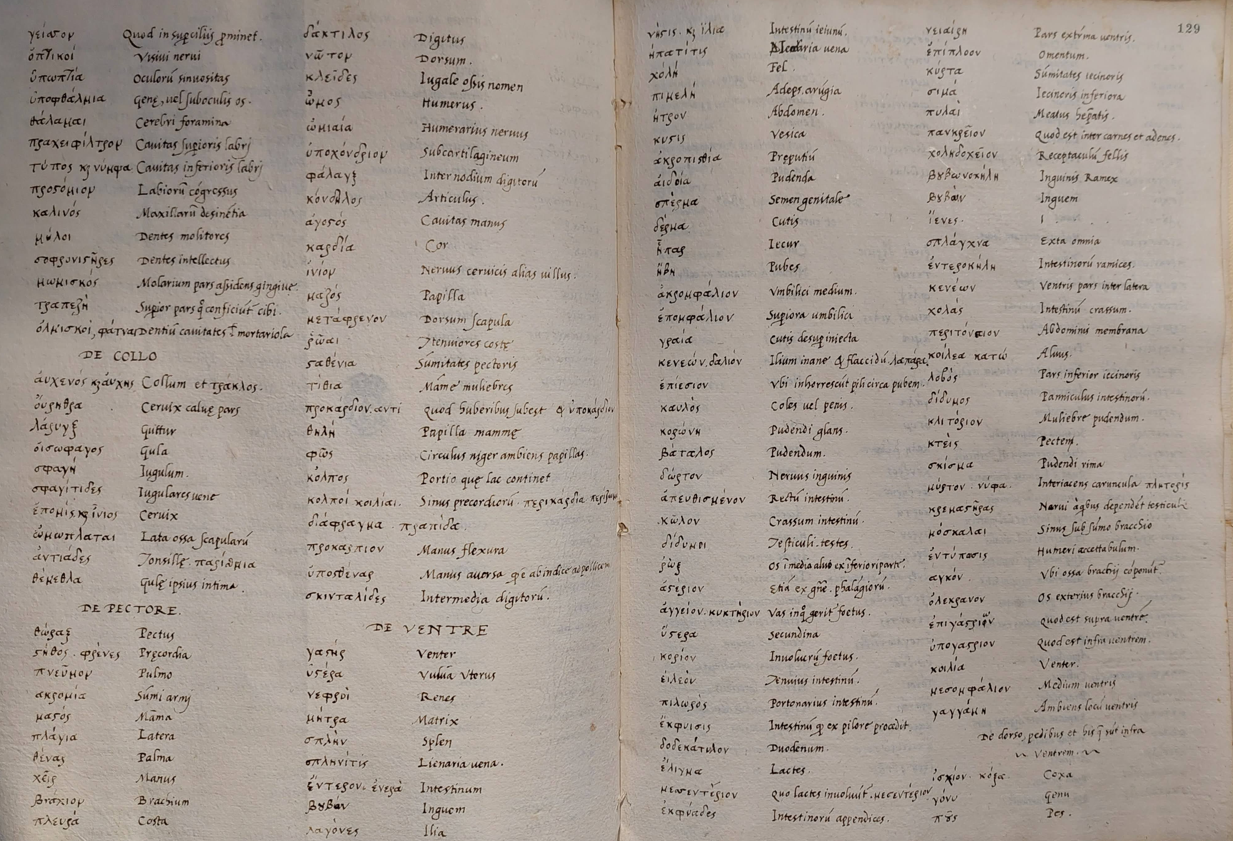 γείσον Quod in supciliis pminet.
ὀπτικοί Visiui nerui
ὑπωπία Oculorū sinuositas
ὑποφθάλμια Genę, uel suboculis os.
θάλαμαι Cerebri foramina
Cauitas supioris labrj
τύπος κ νύμφα Cauitas inferioris labrj
προσόμιον Labiorū cōgressus
χαλινός Maxillarū desinētia
μύλοι Dentes molitores
σοφρονιστῆρες Dentes intellectus.
Molarium pars assidens gingiuę
τραπεζή Supior pars q̄ conficiut̄ cibi.
ὀλμισκοι, φάτναι Dentiū cauitates ł mortariola
DE COLLO
ἀυχενὸς κ ἀυχὴν Collum et τράκλος.
Ceruix caluę pars
λάρυγξ Guttur
οἰσωφαγος Gula
σφαγὴ Iugulum.
σφαγίτιδες Iugulares uenę
ἐπομὶς κ ἴνιος Ceruix
ὠμωπλαται Lata ossa scapularū
ἀντιάδες Tonsillę. παρίσθμια
θέμεθλα Gulę ipsius intima.
DE PECTORE.
θώραξ Pectus
στῆθος. φρένες Pręcordia
πνεύμον Pulmo
ακρομία Sūmi armj
μασός Māma
πλάγια Latera
θένας Palma
χεὶς Manus
βράχιον Brachium
πλευρά Costa
δάκτιλος Digitus
νῶτον Dorsum.
κλεῖδες Iugale ossis nomen
ὦμος Humerus.
ὠμιαία Humerarius neruus
ὑποχόνδριον Subcartilagineum
φάλαγξ Internodium digitorū
κόνδυλος Articulus.
ἀγοσός Cauitas manus
καρδία Cor
ἰνίον Neruus ceruicis alias uillus.
μαζός Papilla
μετάφρενον Dorsum scapula
Tenuiores costę
Sumitates pectoris
τίθια Māmę muliebres
προκάρδιον. αντι Quod huberibus subest & ὑποκάρδιον
θηλὴ Papilla mammę
φῶς Circulus niger ambiens papillas.
κόλπος Portio quę lac continet
κολποὶ κοιλίαι. Sinus precordiorū. περικάρδια
διάφραγμα. πραπίδα.
προκάρπιον Manus flexura
ὑποθένας Manus auersa
σκινταλίδες Intermedia digitorū.
DE VENTRE
γαστὴς Venter
ὑστέρα Vuluia Vterus
νεφροὶ Renes
μήτρα Matrix
σπλὴν Splen
σπληνίτις Lienaria uena.
ἔντερον. ένερὰ Intestinum
βυβὼν Inguem
λαγόνες Ilia
129
νῆστις. κ ἴλια Intestinū ieiunū.
ἡπατίτις uena
χολὴ Fel.
πιμελὴ Adeps. axūgia
ἦτρον Abdomen.
κυσις Vesica
ἀκροπισθία Prepuciū
αἰδοῖα Pudenda
σπέρμα Semen genitale
δέρμα Cutis
ἧπαρ Iecur
ἥβη Pubes
ἀκρομφάλιον Vmbilici medium.
ἐπομφάλιον Supiora umbilica
γραῖα Cutis desup iniecta
κενεών, δαλιον Ilium inane & flaccidū. λαπάρα
ἐπίεσιον Vbi inhorrescut pili circa pubem.
καυλὸς Coles uel penis.
κορώνη Pudendi glans.
βάταλος Pudendum.
δώρτον Neruus inguinis
ἀπευθισμένον Rectū intestinū.
κῶλον Crassum intestinū.
δίδυμοι Testiculi. testes.
ῥὼξ Os i media aluo ex iferiori parte.
ἀστεριον
ἀγγεῖον. κυκτήριον Vas inq̄ gerit̄ foetus.
ὕστερα secundina
κορίον Inuolucrū foetus.
εἰλεὸν Tenuius intestinū.
πιλωρός Portonarius intestinū.
ἔκφυσις Intestinū q ex pilore procedit.
δοδεκάτυλον Duodenum.
ἔλιγμα Lactes.
μεσεντέριον Quo lactes inuoluūt. μεσεντέριον
ἐκφυάδες Intestinorū appendices.
νειαίρη Pars extrema uentris.
ἐπίπλοον Omentum.
κύρτα Sūmitates iecinoris
σιμὰ Iecinoris inferiora
πυλαὶ Meatus hepatis.
πανκρεῖον Quod est inter carnes et adenes.
χοληδοχεῖον Receptaculū fellis
βυβωνοκήλη Inguinis Ramex
βυβὼν Inguem
ἴενες. I.
σπλάγχνα Exta omnia
ἐντεροκήλη Intestinorū ramices.
κενέων Ventris pars inter latera
χολὰς Intestinū crassum.
περιτόναιον Abdominis membrana
κοιλεα κατώ Aluus.
λοβὸς Pars inferior iecinoris
δίδυμος Panniculus intestinorū.
κλιτόριον Muliebre pudendum.
κτεὶς Pectem.
σκίσμα Pudendi rima
μύρτον. νύφα. Interiacens caruncula
κρεμαστῆρας Nerui a q̄bus dependēt testiculi
μόσκαλαι Sinus sub sūmo bracchio
ἐντύπωσις Humeri accettabulum.
αγκὸν Vbi ossa brachij cōponūt.
ὀλεκρανον Os exterius bracchij.
ἐπιγάστριον Quod est supra uentrē.
ὑπογάστριον Quod est infra uentrem.
κοιλία Venter.
μεσομφάλιον Medium uentris
γαγγάμη Ambiens locū uentris
De dorso, pedibus et bis q̄ sūt infra
Ventrem.
ἰσχίον. κόξα. Coxa
γόνυ Genu
ποῦς Pes.